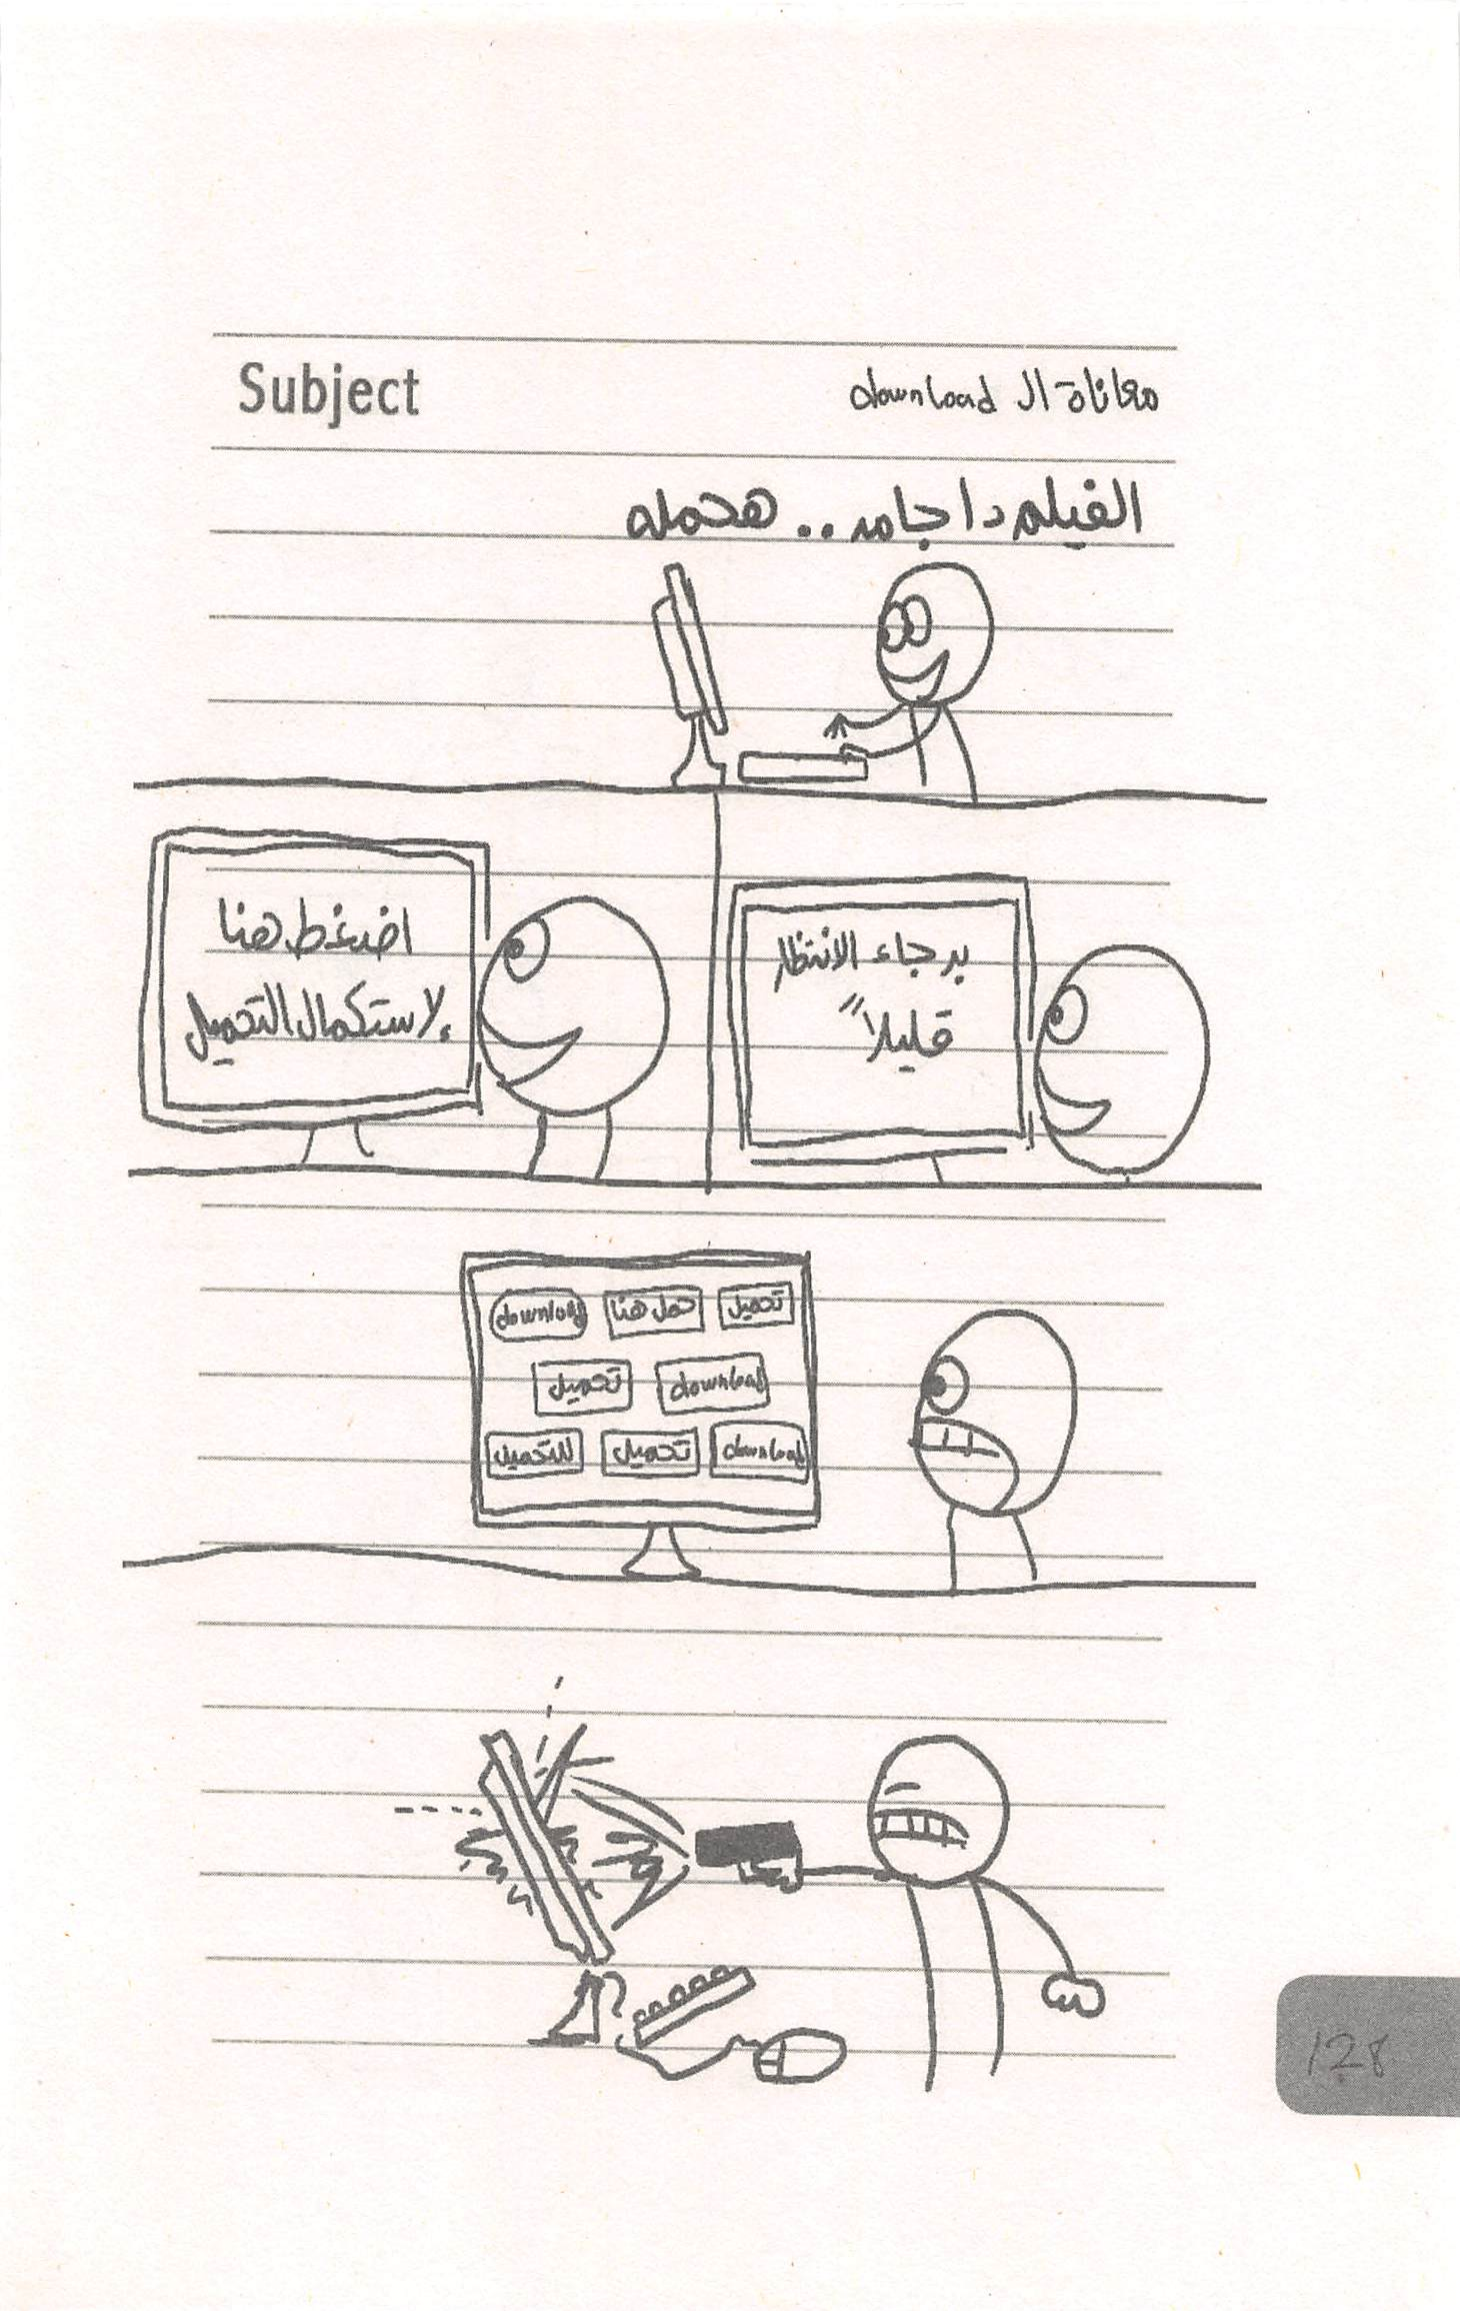 Subject
معاناة ال download
الفيلم دا جامد.. هحمله
برجاء الانتظار
قليلاً
اضغط هنا
لاستكمال التحميل
تحميل
حمل هنا
download
download
تحميل
download
تحميل
للتحميل
128